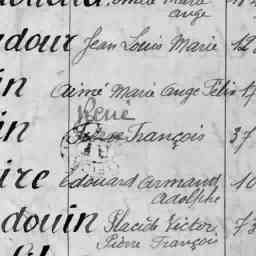 Marie
Ange
adour Jean Louis Marie 12
in Aimé Marie Ange Félix 1
René
in François 37
ire Edouard Armand 10
Adolphe
douin Placide Victor 73
Pierre François